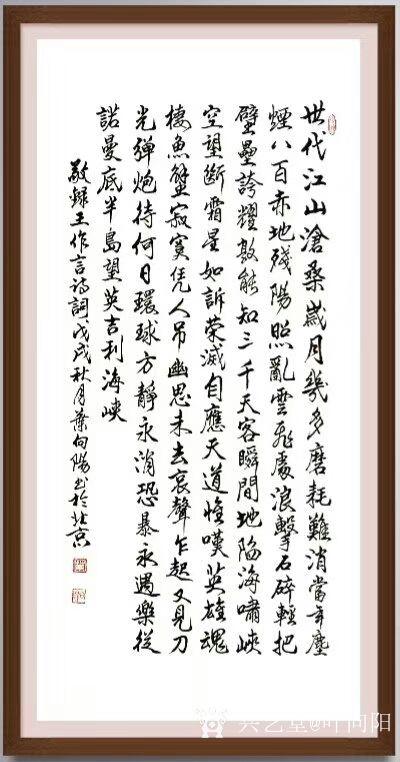 世代江山滄桑歲月幾多磨耗難消當年塵
煙八百赤地殘陽照亂雲飛處浪擊石碎輕把
壁壘誇耀敦能知三千天客瞬間地陷海嘯峽
空望斷霜星如訴榮滅自應天道惟嘆英雄魂
棲魚蟹寂寞凭人吊幽思未去哀聲乍起又見刀
光彈炮待何日環球方靜永消恐暴永遇樂從
諾曼底半島望英吉利海峽
敬錄王作言詩詞戊戌秋月葉向陽書於北京
兴艺堂@叶向阳